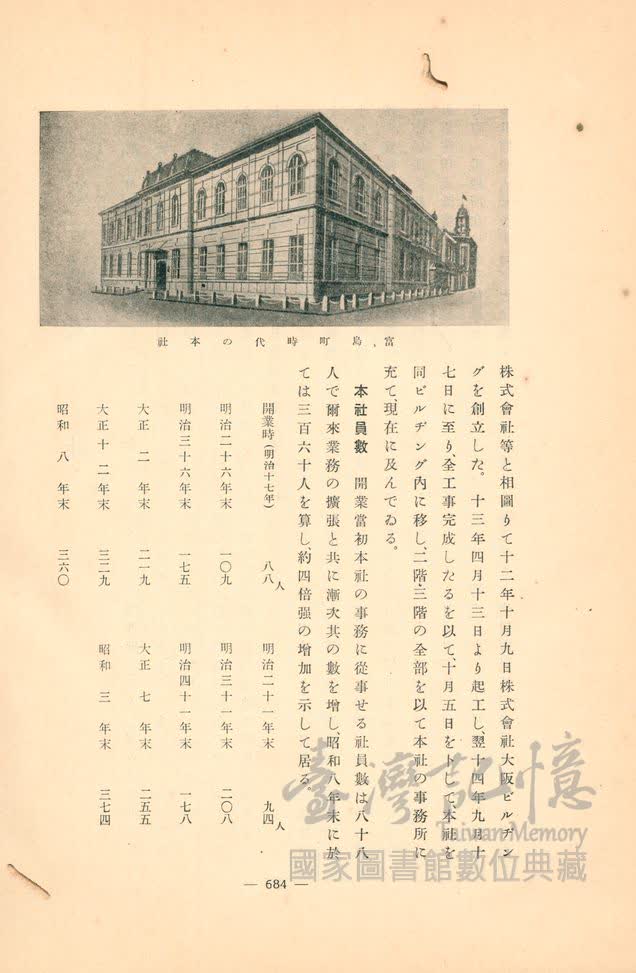 富島町時代の本社
株式會社等と相圖りて十二年十月九日株式會社大阪ビルヂン
グを創立した。十三年四月十三日より起工し、翌十四年九月十
七日に至り、全工事完成したるを以て、十月五日を卜して本社を
同ビルヂング內に移し、二階、三階の全部を以て本社の事務所に
充て、現在に及んでゐる。
本社員數 開業當初本社の事務に從事せる社員數は八十八
人で爾來業務の擴張と共に漸次其の數を增し、昭和八年末に於
ては三百六十人を算し、約四倍强の增加を示して居る。
開業時(明治十七年) 八八人 明治二十一年末 九四人
明治二十六年末 一〇九 明治三十一年末 二〇八
明治三十六年末 一七五 明治四十一年末 一七八
大正二年末 二一九 大正七年末 二五五
大正十二年末 三二九 昭和三年末 三七四
昭和八年末 三六〇
— 684 —
臺灣記憶
Taiwan Memory
國家圖書館數位典藏